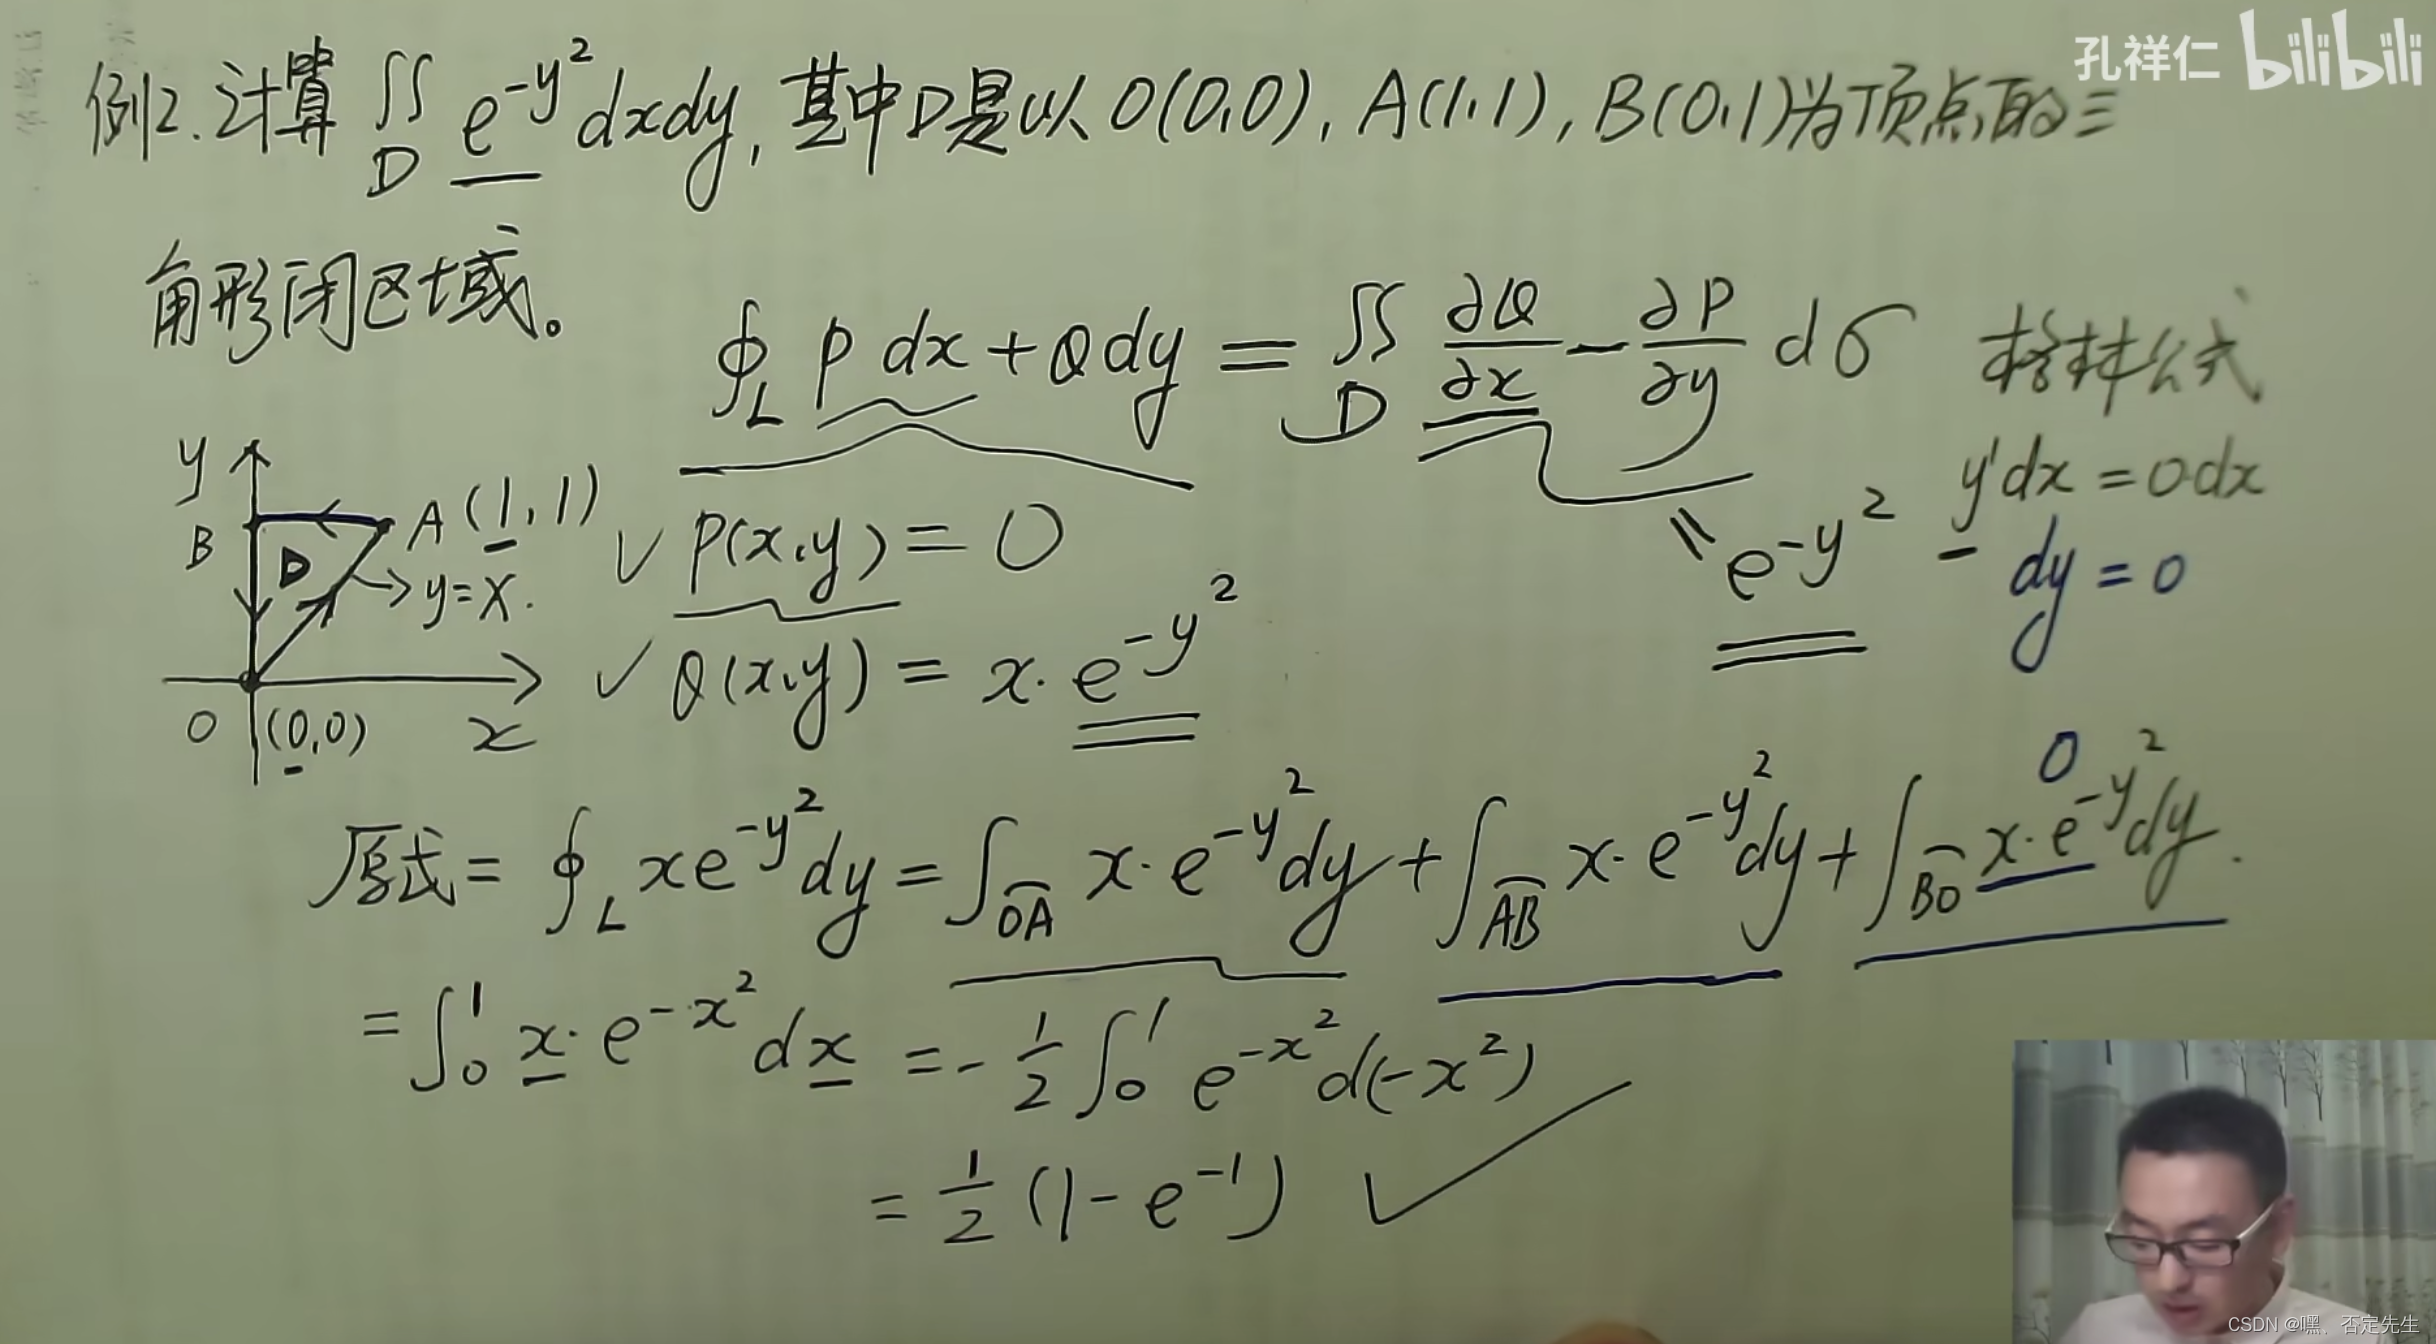 孔祥仁 bilibili
例2.计算 ∬_D e^{-y²}dxdy, 其中D是以 O(0,0), A(1,1), B(0,1)为顶点的三
角形闭区域。
∮_L P dx + Q dy = ∬_D ∂Q/∂x - ∂P/∂y dσ 格林公式
y'dx = 0dx
= e^{-y²} dy = 0
y
B A(1,1)
D y=x.
O (0,0) x
✓ P(x,y) = 0
✓ Q(x,y) = x·e^{-y²}
原式 = ∮_L xe^{-y²}dy = ∫_{OA} x·e^{-y²}dy + ∫_{AB} x·e^{-y²}dy + ∫_{BO} x·e^{-y²}dy. 0
= ∫₀¹ x·e^{-x²}dx = -1/2 ∫₀¹ e^{-x²}d(-x²)
= 1/2 (1-e^{-1}) ✓
CSDN @嘿、否定先生